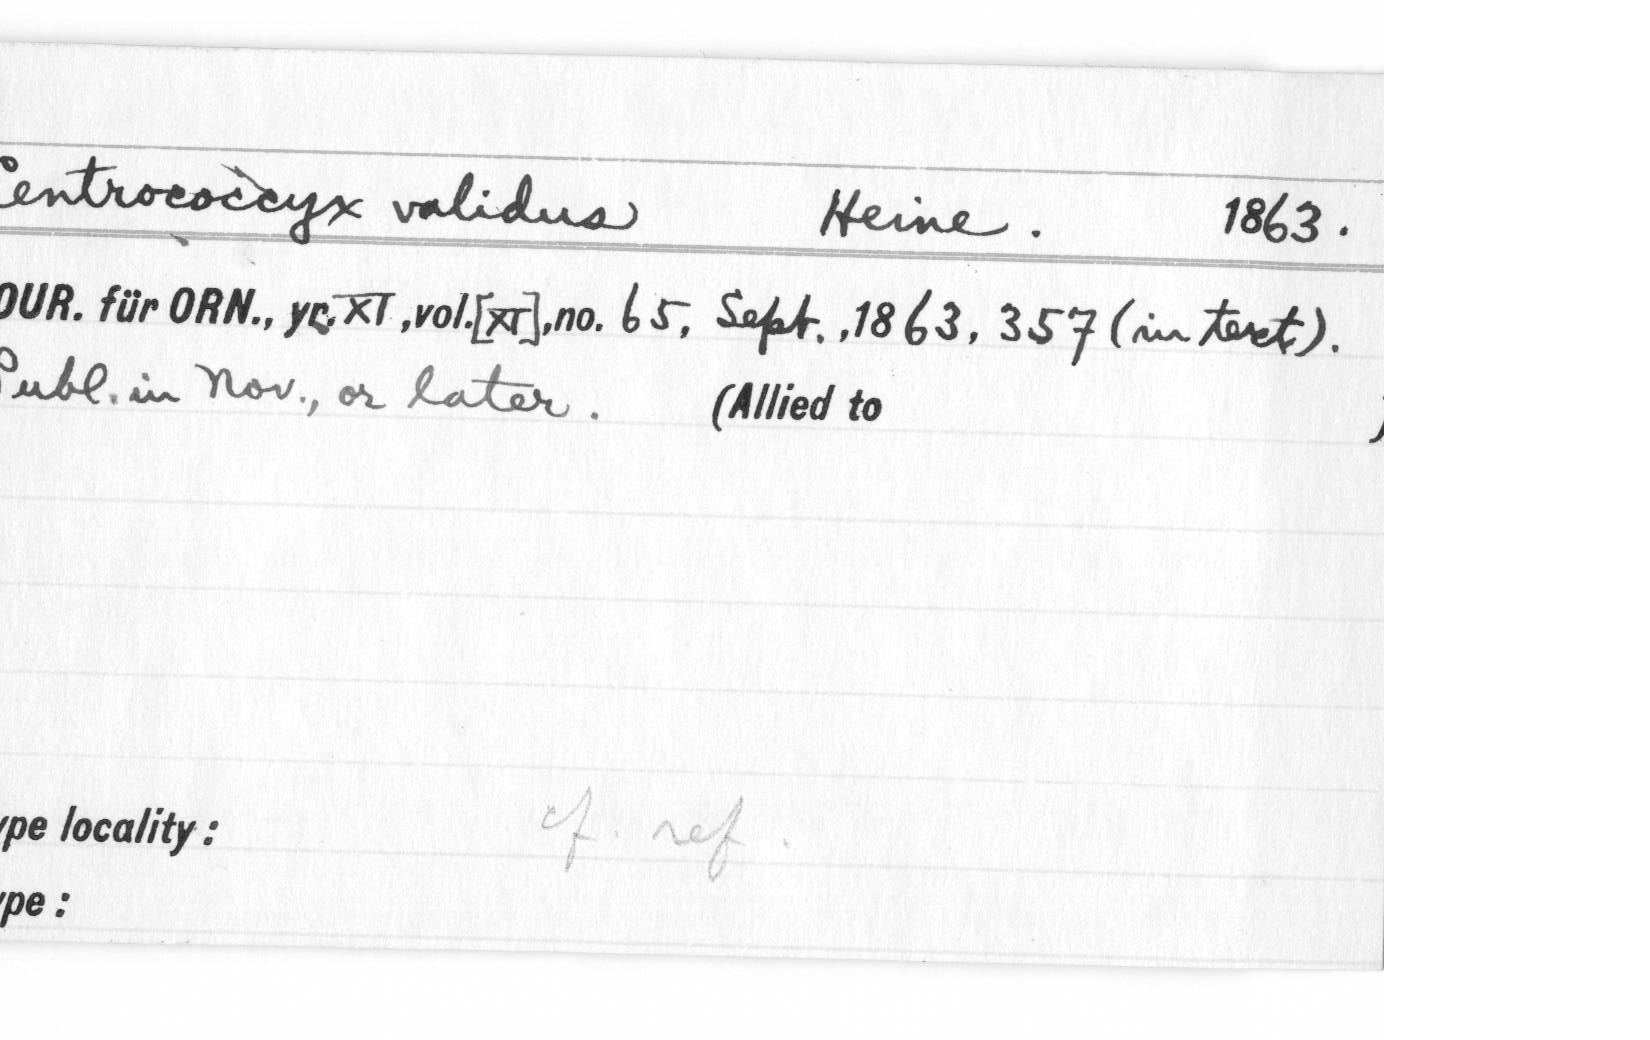 Centrococcyx validus Heine. 1863.
OUR. für ORN., yr. XI, vol. [XI], no. 65, Sept., 1863, 357 (in text).
Publ. in Nov., or later. (Allied to )
ype locality: cf. ref.
ype: